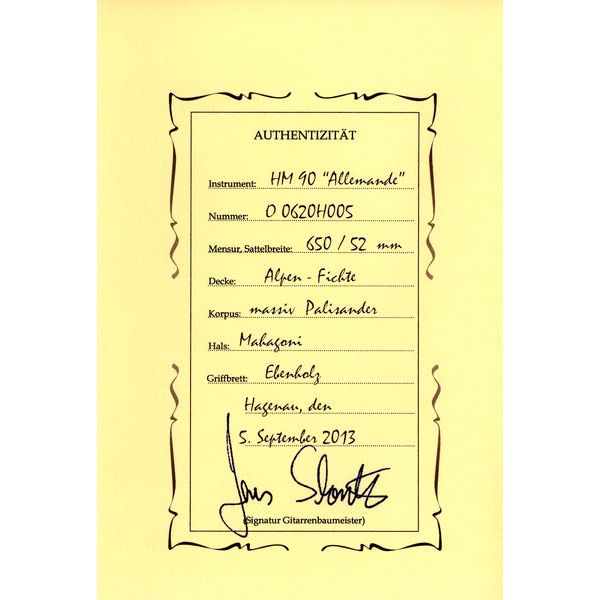 AUTHENTIZITÄT
Instrument: HM 90 "Allemande"
Nummer: O 0620H005
Mensur, Sattelbreite: 650 / 52 mm
Decke: Alpen - Fichte
Korpus: massiv Palisander
Hals: Mahagoni
Griffbrett: Ebenholz
Hagenau, den
5. September 2013
(Signatur Gitarrenbaumeister)